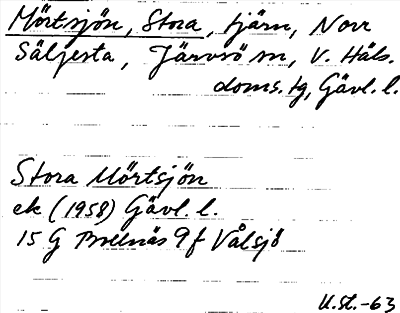 Mörtsjön, Stora, tjärn, Norr
Säljesta, Järvsö sn, V. Häls.
doms. tg, Gävl. l.
Stora Mörtsjön
ek (1958) Gävl. l.
15 G Bollnäs 9f Vålsjö
U.St.-63